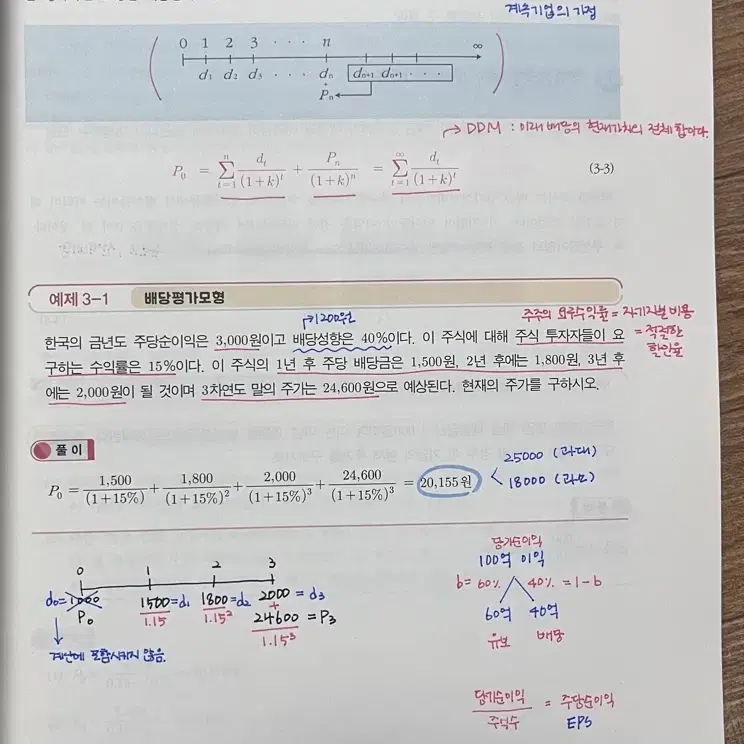 계속기업의 가정
0 1 2 3 · · · n ∞
d₁ d₂ d₃ · · · dₙ dₙ₊₁ dₙ₊₁ · · ·
Pₙ
→ DDM : 미래 배당의 현재가치의 전체 합이다.
P₀ = Σ(t=1, n) dₜ/(1+k)ᵗ + Pₙ/(1+k)ⁿ = Σ(t=1, ∞) dₜ/(1+k)ᵗ (3-3)
예제 3-1 배당평가모형
1200원
주주의 요구수익률 = 자기자본비용
= 적절한
할인율
한국의 금년도 주당순이익은 3,000원이고 배당성향은 40%이다. 이 주식에 대해 주식 투자자들이 요
구하는 수익률은 15%이다. 이 주식의 1년 후 주당 배당금은 1,500원, 2년 후에는 1,800원, 3년 후
에는 2,000원이 될 것이며 3차연도 말의 주가는 24,600원으로 예상된다. 현재의 주가를 구하시오.
풀 이
P₀ = 1,500/(1+15%) + 1,800/(1+15%)² + 2,000/(1+15%)³ + 24,600/(1+15%)³ = 20,155원
25000 (과대)
18000 (과소)
0 1 2 3
d₀=1000 1500=d₁ 1800=d₂ 2000=d₃
P₀ 1.15 1.15² +
24600=P₃
1.15³
계산에 포함시키지 않음.
당기순이익
100억 이익
b=60% 40%=1-b
60억 40억
유보 배당
당기순이익/주식수 = 주당순이익
EPS